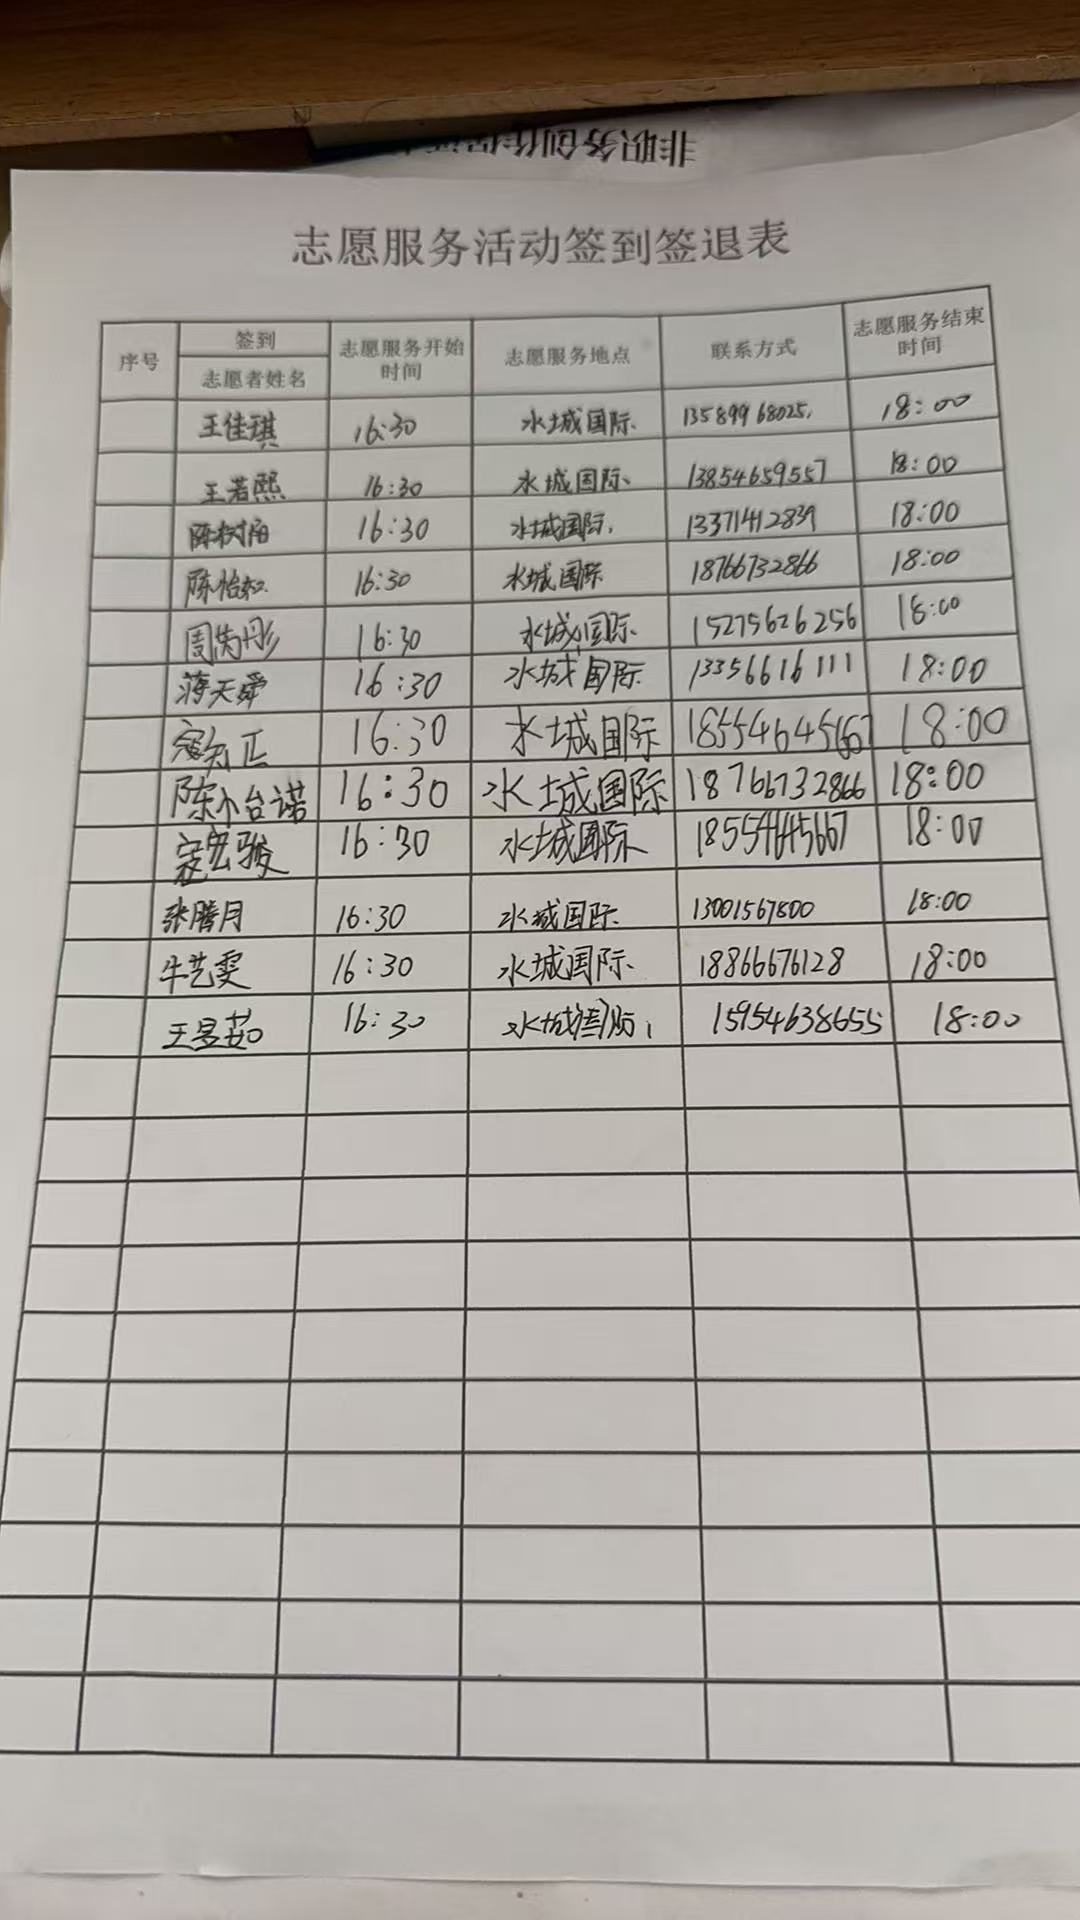 非职务创作保
志愿服务活动签到签退表
序号 签到 志愿者姓名 志愿服务开始时间 志愿服务地点 联系方式 志愿服务结束时间
王佳琪 16:30 水城国际 13589968025 18:00
王若熙 16:30 水城国际 13854659557 18:00
陈树 16:30 水城国际 13371412839 18:00
陈怡 16:30 水城国际 18766732866 18:00
周 彤 16:30 水城国际 15275626256 18:00
蒋天舜 16:30 水城国际 13356616111 18:00
寇知正 16:30 水城国际 18:00
陈怡诺 16:30 水城国际 18766732866 18:00
寇宏骏 16:30 水城国际 18554645667 18:00
张腾月 16:30 水城国际 13001567800 18:00
牛艺雯 16:30 水城国际 18866676128 18:00
王昱茹 16:30 水城国际 15954638655 18:00